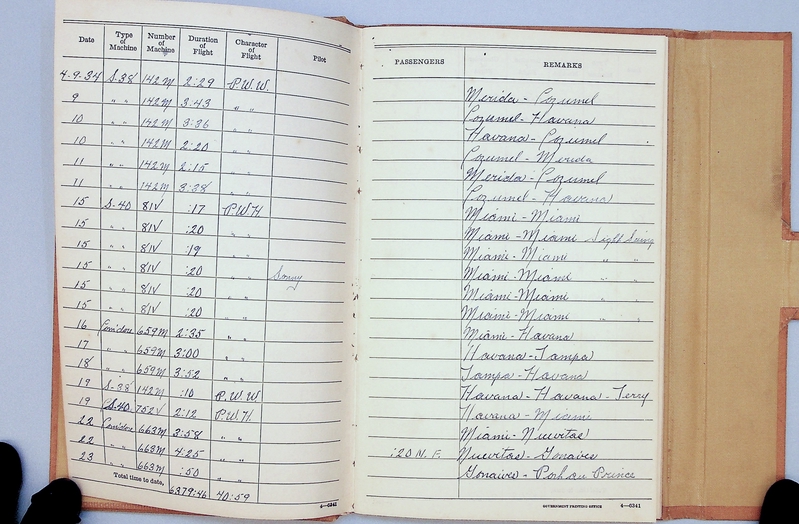 Date Type of Machine Number of Machine Duration of Flight Character of Flight Pilot PASSENGERS REMARKS
4-9-34 S-38 142M 2:29 P.W.W. Merida - Cozumel
9 " " 142M 3:43 " " Cozumel - Havana
10 " " 142M 3:36 " " Havana - Cozumel
10 " " 142M 2:20 " " Cozumel - Merida
11 " " 142M 2:15 " " Merida - Cozumel
11 " " 142M 3:28 " " Cozumel - Havana
15 S-40 81V :17 P.W.H. Miami - Miami
15 " " 81V :20 " " Miami - Miami Sight Seeing
15 " " 81V :19 " " Miami - Miami " "
15 " " 81V :20 " " Sonny Miami - Miami " "
15 " " 81V :20 " " Miami - Miami " "
15 " " 81V :20 " " Miami - Miami " "
16 Comodore 659M 2:35 " " Miami - Havana
17 " " 659M 3:00 " " Havana - Tampa
18 " " 659M 3:52 " " Tampa - Havana
19 S-38 142M :10 P.W.W. Havana - Havana - Ferry
19 S-40 752V 2:12 P.W.H. Havana - Miami
22 Comodore 663M 3:58 " " Miami - Nuevitas
22 " " 663M 4:25 " " :20 N.F. Nuevitas - Gonaives
23 " " 663M :50 " " Gonaives - Port au Prince
Total time to date, 6379:46 40:59
4-6241 GOVERNMENT PRINTING OFFICE 4-6241